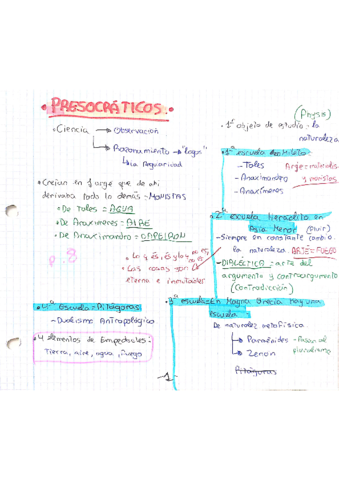 PRESOCRÁTICOS.
Ciencia → Observación
→ Razonamiento → "logos"
↳ la Regularidad
Creían en 1 arge que de ahí
derivaba todo lo demás - MONISTAS
De Tales = AGUA
De Anaxímenes = AIRE
De Anaximandro = ÁPEIRON
Lo q es, es y lo q no es, no es
Las cosas son
eterna e inmutables
4ª Escuela = Pitágoras
- Dualismo Antropológico
4 elementos de Empédocles:
Tierra, aire, agua, fuego
(Physis)
1º objeto de estudio: la
naturaleza
1ª escuela de Mileto
- Tales
- Anaximandro
- Anaxímenes
Arje = míralos
2ª escuela Heráclito en
Asia Menor
- Siempre en constante cambio
la naturaleza ARJE = FUEGO
- DIALÉCTICA = arte del
argumento y contraargumento
(Contradicción)
3ª escuela En Magna Grecia hay una
escuela
De naturalez metafísica
→ Parménides
→ Zenón
Pitágoras
1